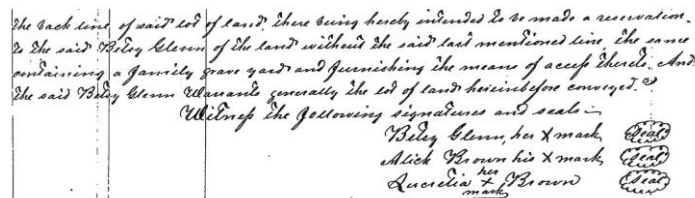 the back line of said lot of land, there being hereby intended to be made a reservation
to the said Betsy Glenn of the land without the said last mentioned line, the same
containing a family grave yard and furnishing the means of access thereto. And
the said Betsy Glenn warrants generally the lot of land hereinbefore conveyed.
Witness the following signatures and seals—
Betsy Glenn, her X mark (Seal)
Alick Brown his X mark (Seal)
her
Lucretia X Brown (Seal)
mark